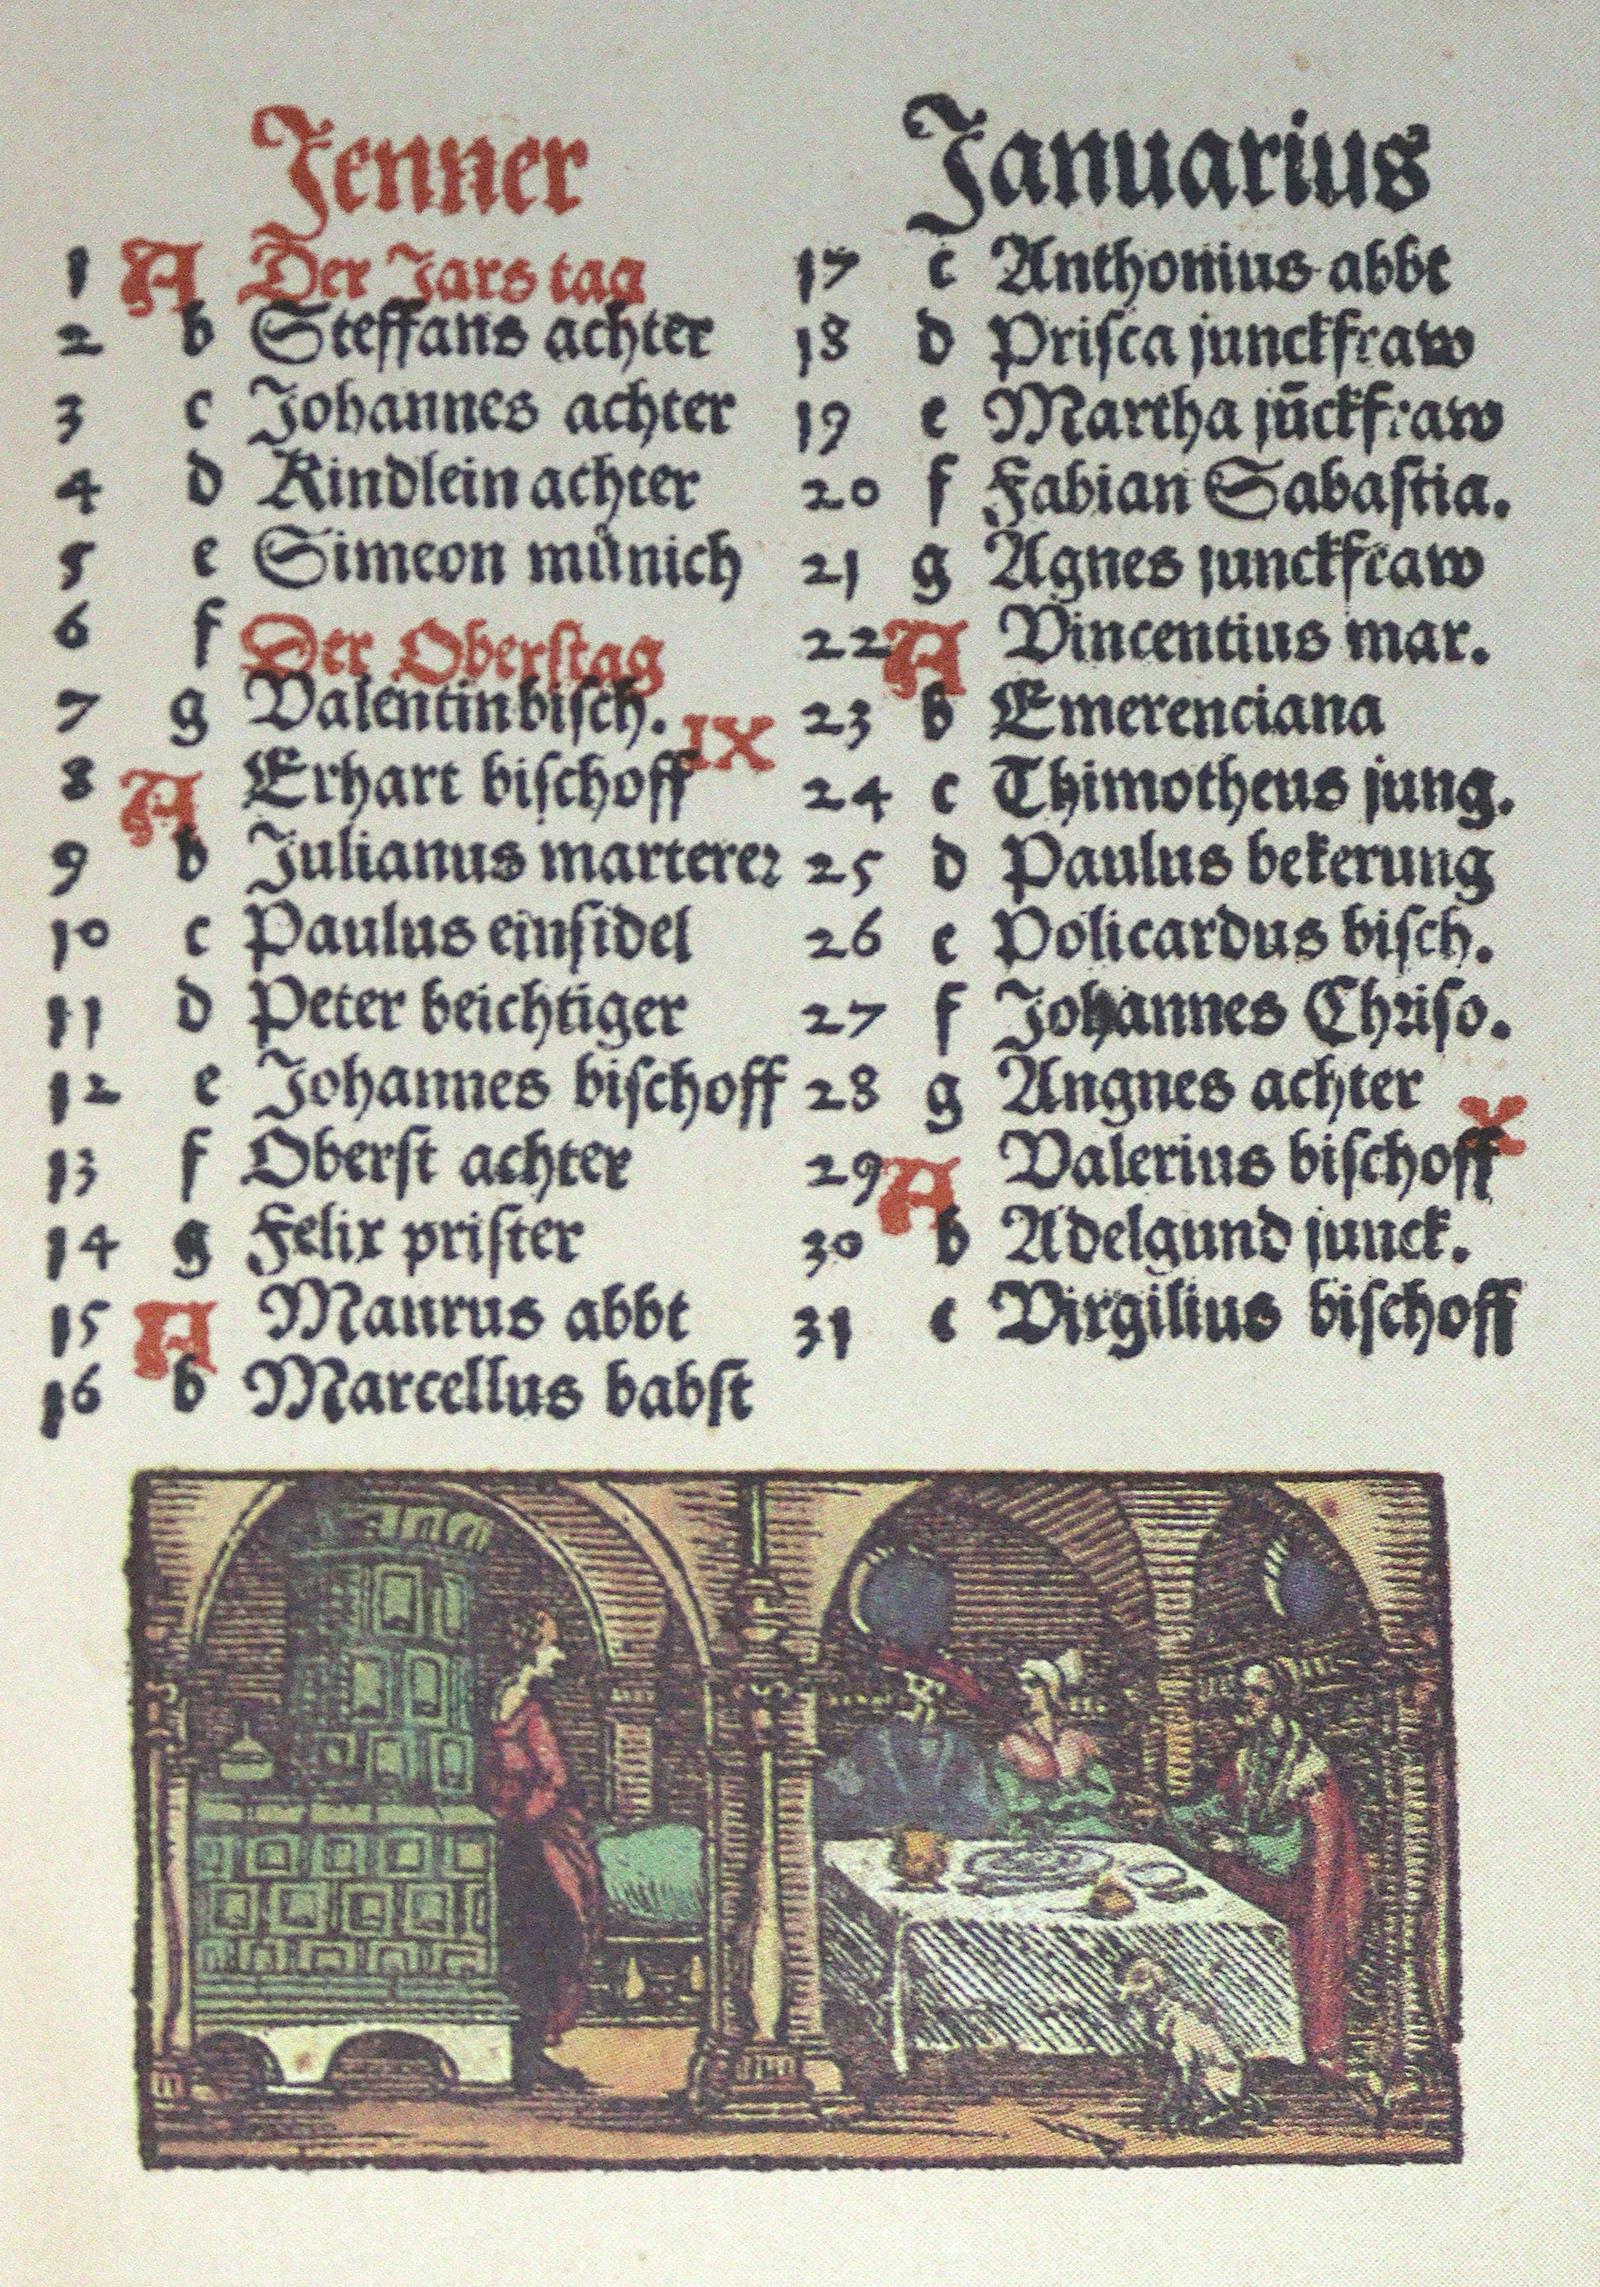 Jenner
1 A Der Jars tag
2 b Steffans achter
3 c Johannes achter
4 d Kindlein achter
5 e Simeon mu̇nich
6 f Der Oberstag
7 g Valentin bisch.
IX
8 A Erhart bischoff
9 b Julianus martereꝛ
10 c Paulus einsidel
11 d Peter beichtiger
12 e Johannes bischoff
13 f Oberst achter
14 g Felix prister
15 A Maurus abbt
16 b Marcellus babst
Januarius
17 c Anthonius abbt
18 d Prisca junckfraw
19 e Martha jūckfraw
20 f Fabian Sabastia.
21 g Agnes junckfraw
22 A Vincentius mar.
23 b Emerenciana
24 c Thimotheus jung.
25 d Paulus bekerung
26 e Policardus bisch.
27 f Johannes Chꝛiso.
28 g Angnes achter
X
29 A Valerius bischoff
30 b Adelgund junck.
31 c Virgilius bischoff